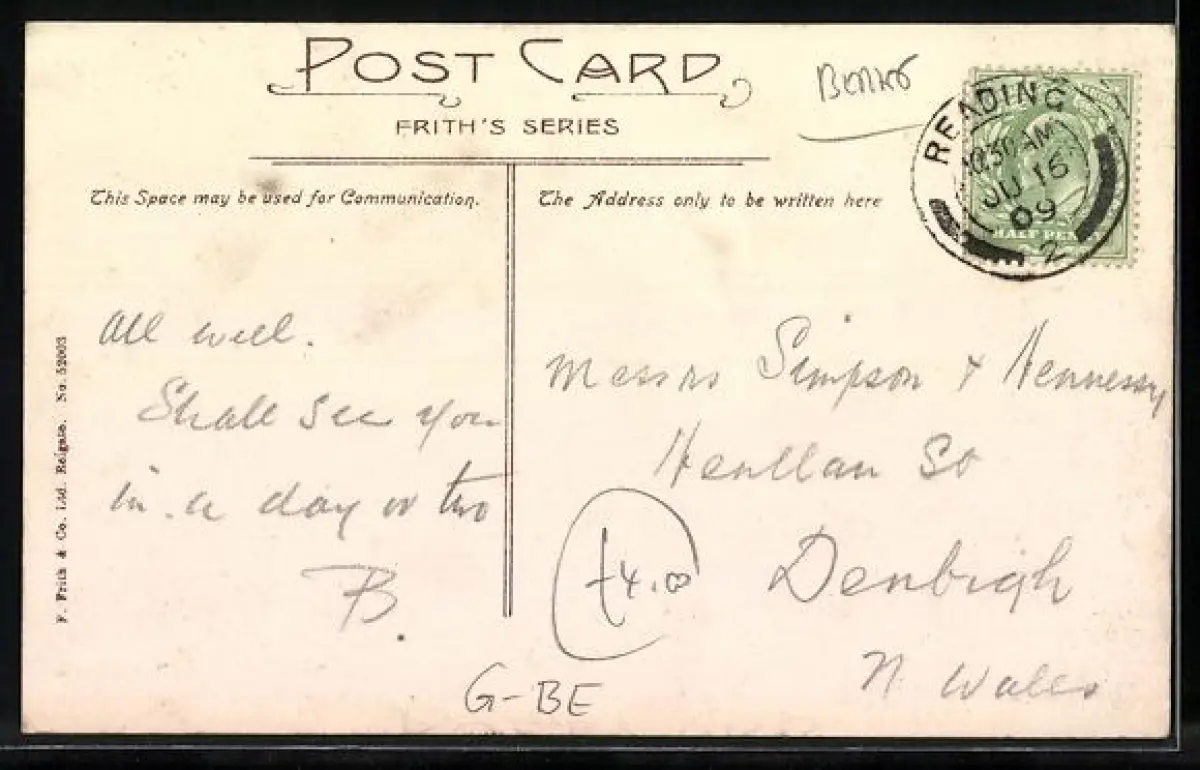 POST CARD
FRITH'S SERIES
BERKS
READING
10.30 AM
JU 16
09
2
HALF PENNY
This Space may be used for Communication.
The Address only to be written here
All well.
Shall see you
in a day or two
B.
Messrs Simpson & Hennessy
Henllan St
Denbigh
N. Wales
£4.00
G-BE
F. Frith & Co. Ltd. Reigate. No. 52003